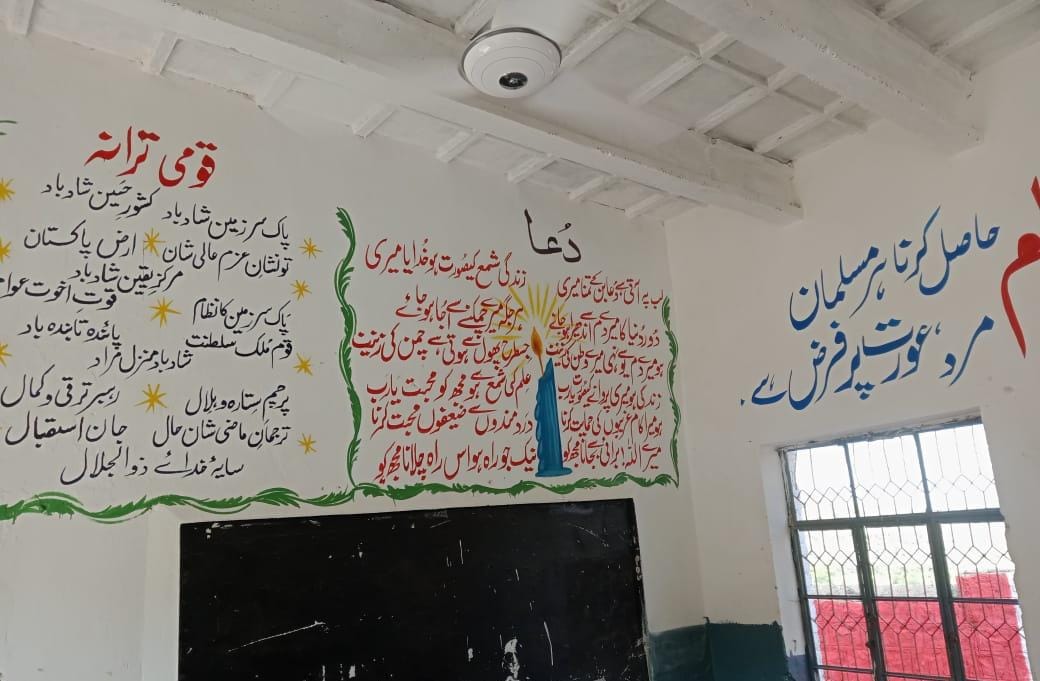 قومی ترانہ
پاک سرزمین شاد باد کشورِ حسین شاد باد
تو نشان عزم عالی شان ارض پاکستان
مرکز یقین شاد باد
پاک سرزمین کا نظام قوت اخوت عوام
قوم ملک سلطنت پائندہ تابندہ باد
شاد باد منزل مراد
پرچم ستارہ و ہلال رہبر ترقی و کمال
ترجمان ماضی شان حال جان استقبال
سایۂ خدائے ذوالجلال
دُعا
لب پہ آتی ہے دعا بن کے تمنا میری زندگی شمع کیصورت ہو خُدایا میری
دور دنیا کا میرے دم اندھیرا ہو جائے ہر جگہ میرے چمکنے سے اجالا ہو جائے
ہو میرے دم سے یونہی میرے وطن کی زینت جسطرح پھول سے ہوتی ہے چمن کی زینت
زندگی ہو میری پروانے کیصورت یارب علم کی شمع سے ہو مجھ کو محبت یارب
ہو میرا کام غریبوں کی حمایت کرنا درد مندوں سے ضعیفوں سے محبت کرنا
میرے اللہ! برائی سے بچانا مجھ کو نیک جو راہ ہو اس راہ پہ چلانا مجھ کو
حاصل کرنا ہر مسلمان
مرد، عورت پر فرض ہے۔